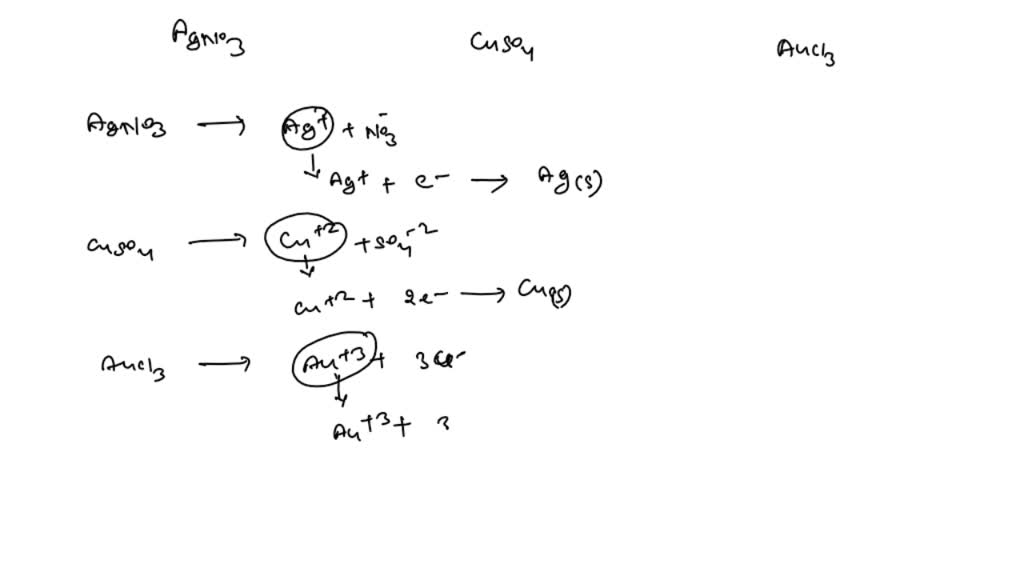 AgNO3 CuSO4 AuCl3
AgNO3 → Ag+ + NO3-
Ag+ + e- → Ag(s)
CuSO4 → Cu+2 + SO4-2
Cu+2 + 2e- → Cu(s)
AuCl3 → Au+3 + 3Cl-
Au+3 + 3